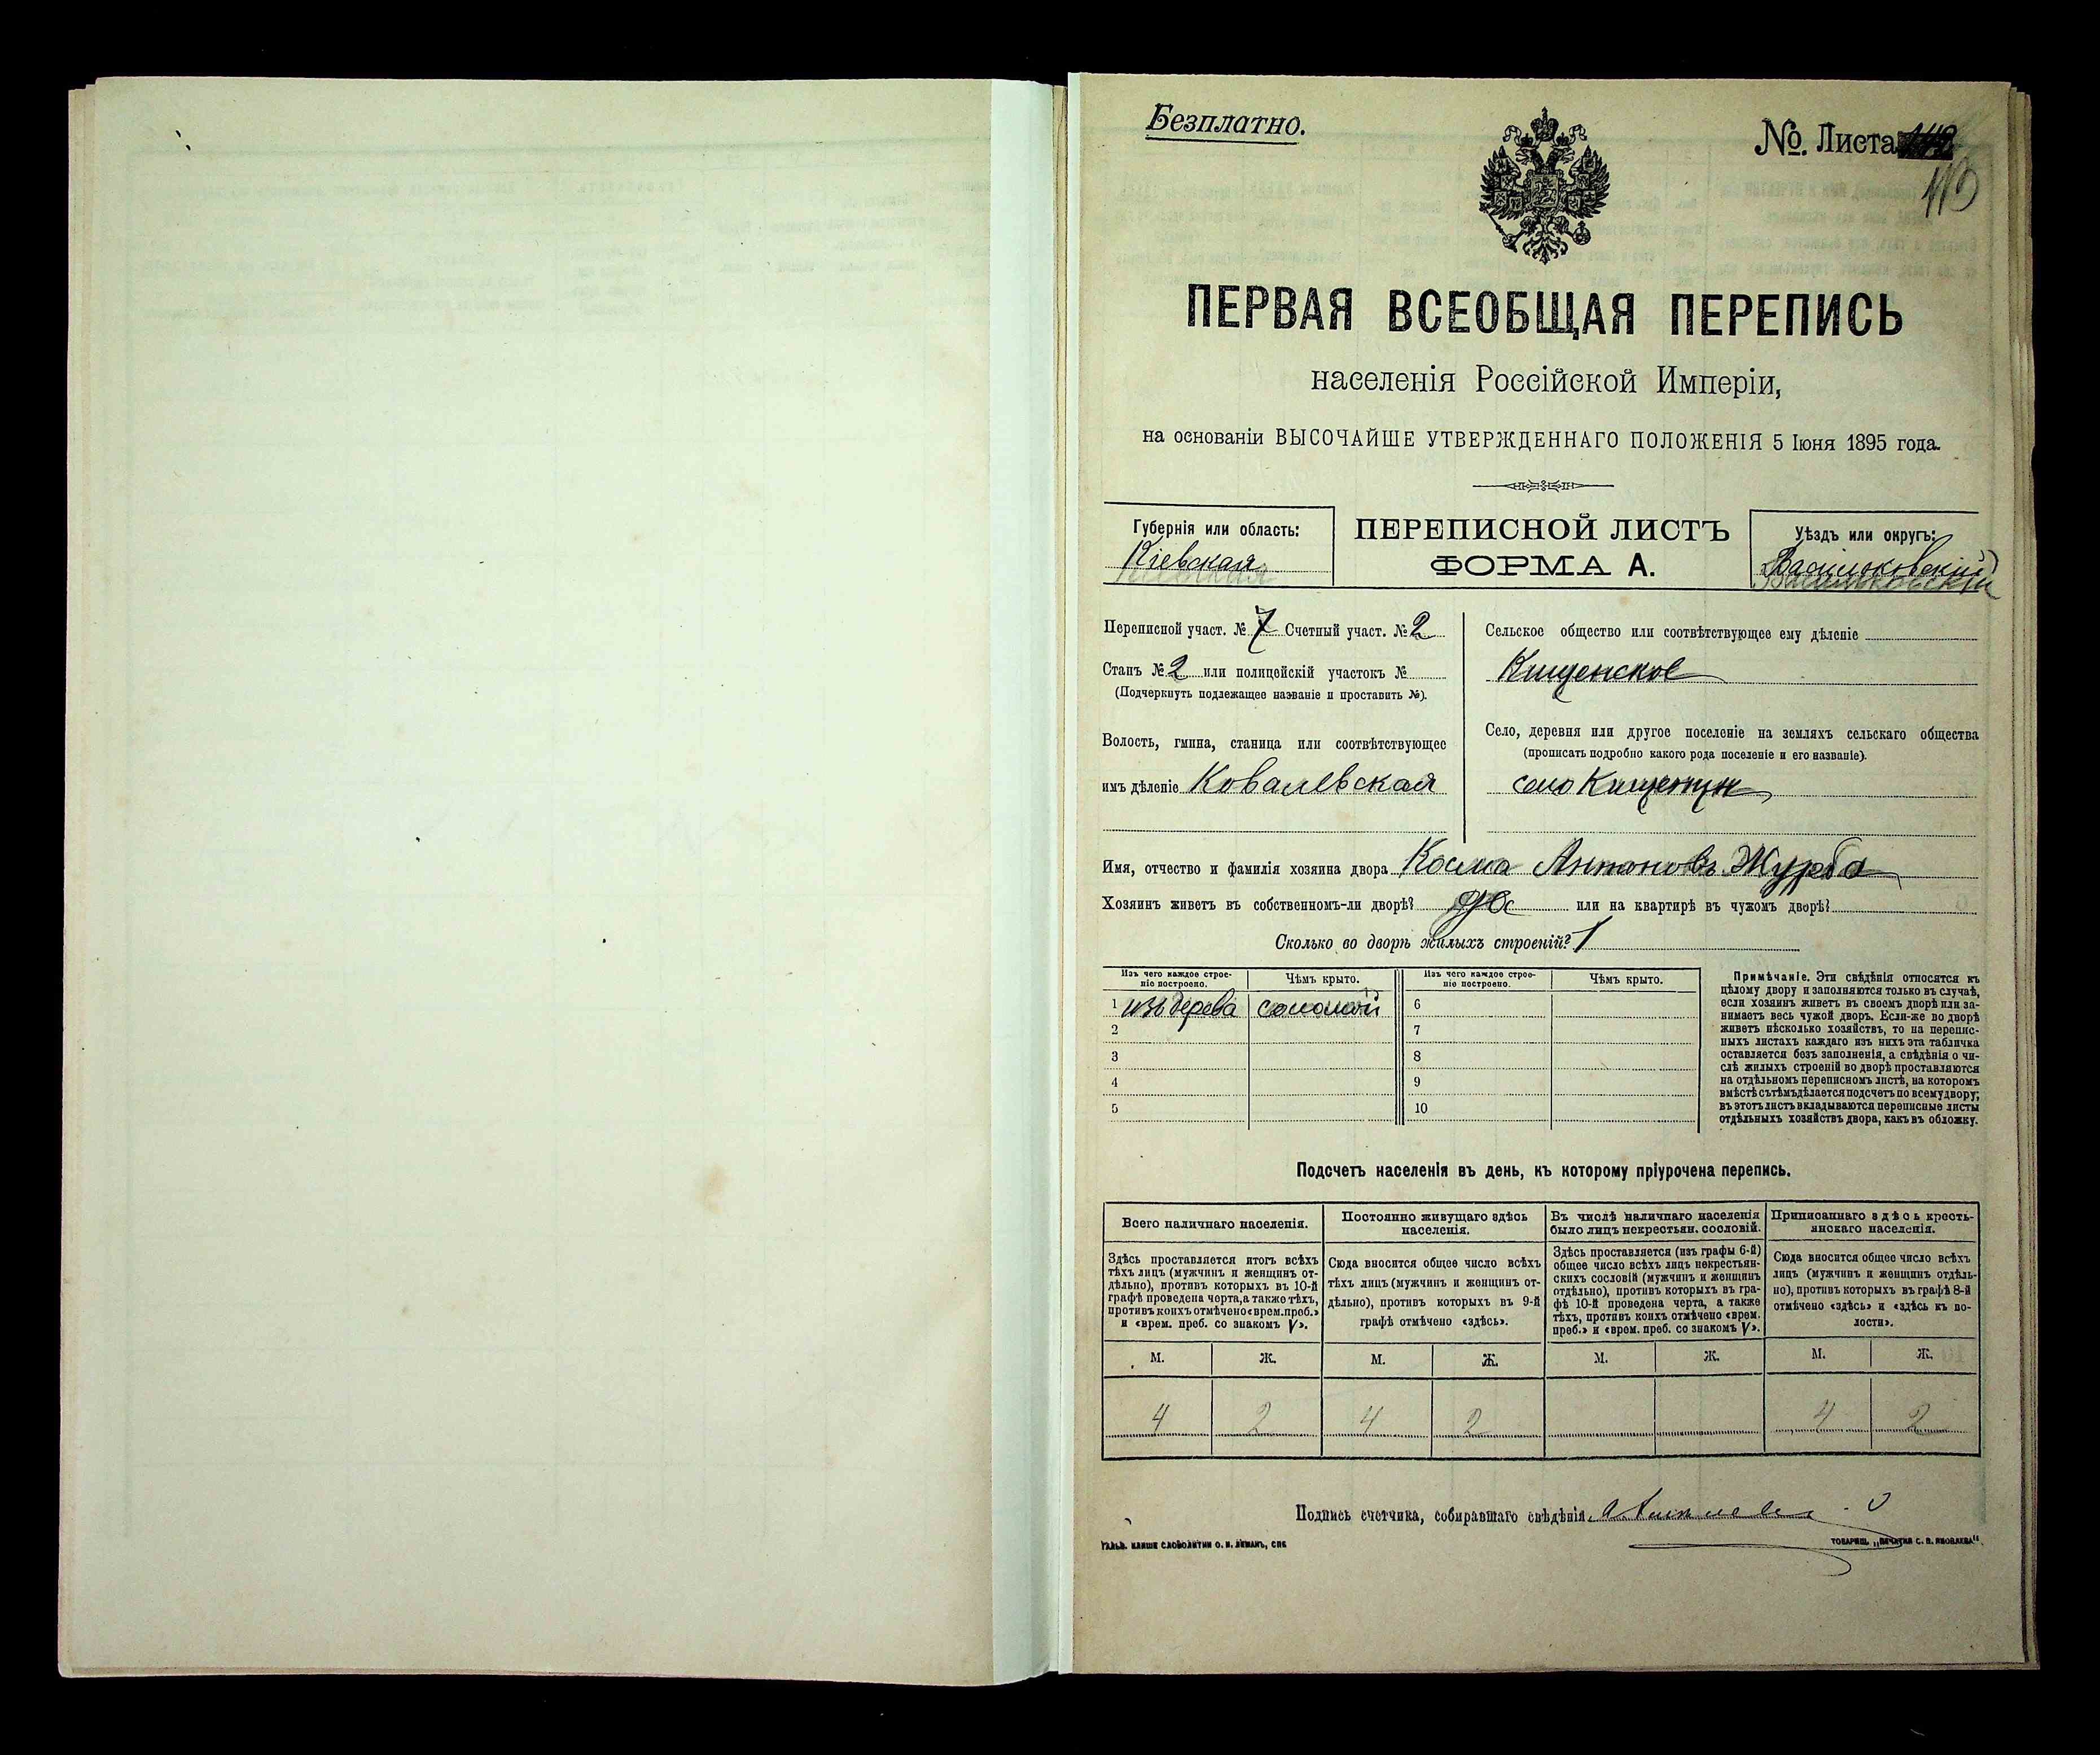 Безплатно.
№. Листа
ПЕРВАЯ ВСЕОБЩАЯ ПЕРЕПИСЬ
населенія Россійской Имперіи,
на основаніи ВЫСОЧАЙШЕ УТВЕРЖДЕННАГО ПОЛОЖЕНІЯ 5 Іюня 1895 года.
Губернія или область:
Кіевская
ПЕРЕПИСНОЙ ЛИСТЪ
ФОРМА А.
Уѣздъ или округъ:
Васильковскій
Переписной участ. № 7 Счетный участ. № 2
Станъ № 2 или полицейскій участокъ №
(Подчеркнуть подлежащее названіе и проставить №).
Волость, гмина, станица или соотвѣтствующее
имъ дѣленіе Ковалевская
Сельское общество или соотвѣтствующее ему дѣленіе
Кищенское
Село, деревня или другое поселеніе на земляхъ сельскаго общества
(прописать подробно какого рода поселеніе и его названіе).
село Кищенци
Имя, отчество и фамилія хозяина двора Косма Антоновъ Журба
Хозяинъ живетъ въ собственномъ-ли дворѣ? да или на квартирѣ въ чужомъ дворѣ?
Сколько во дворѣ жилыхъ строеній? 1
Изъ чего каждое строе-
ніе построено.
Чѣмъ крыто.
Изъ чего каждое строе-
ніе построено.
Чѣмъ крыто.
1 изъ дерева соломой 6
2 7
3 8
4 9
5 10
Примѣчаніе. Эти свѣдѣнія относятся къ
цѣлому двору и заполняются только въ случаѣ,
если хозяинъ живетъ въ своемъ дворѣ или за-
нимаетъ весь чужой дворъ. Если-же во дворѣ
живетъ нѣсколько хозяйствъ, то на перепис-
ныхъ листахъ каждаго изъ нихъ эта табличка
оставляется безъ заполненія, а свѣдѣнія о чи-
слѣ жилыхъ строеній во дворѣ проставляются
на отдѣльномъ переписномъ листѣ, на которомъ
вмѣстѣ съ тѣмъ дѣлается подсчетъ по всему двору;
въ этотъ листъ вкладываются переписные листы
отдѣльныхъ хозяйствъ двора, какъ въ обложку.
Подсчетъ населенія въ день, къ которому пріурочена перепись.
Всего наличнаго населенія.
Здѣсь проставляется итогъ всѣхъ
тѣхъ лицъ (мужчинъ и женщинъ от-
дѣльно), противъ которыхъ въ 10-й
графѣ проведена черта, а также тѣхъ,
противъ коихъ отмѣчено «врем. преб.»
и «врем. преб. со знакомъ V».
Постоянно живущаго здѣсь
населенія.
Сюда вносится общее число всѣхъ
тѣхъ лицъ (мужчинъ и женщинъ от-
дѣльно), противъ которыхъ въ 9-й
графѣ отмѣчено «здѣсь».
Въ числѣ наличнаго населенія
было лицъ некрестьян. сословій.
Здѣсь проставляется (изъ графы 6-й)
общее число всѣхъ лицъ некрестьян-
скихъ сословій (мужчинъ и женщинъ
отдѣльно), противъ которыхъ въ гра-
фѣ 10-й проведена черта, а также
тѣхъ, противъ коихъ отмѣчено «врем.
преб.» и «врем. преб. со знакомъ V».
Приписаннаго здѣсь кресть-
янскаго населенія.
Сюда вносится общее число всѣхъ
лицъ (мужчинъ и женщинъ отдѣль-
но), противъ которыхъ въ графѣ 8-й
отмѣчено «здѣсь» и «здѣсь къ во-
лости».
М. Ж. М. Ж. М. Ж. М. Ж.
4 2 4 2 4 2
Подпись счетчика, собиравшаго свѣдѣнія
ГАЛЬВ. КЛИШЕ СЛОВОЛИТНИ О. И. ЛЕМАНЪ, СПБ
ТОВАРИЩ. „ПЕЧАТНЯ С. П. ЯКОВЛЕВА".